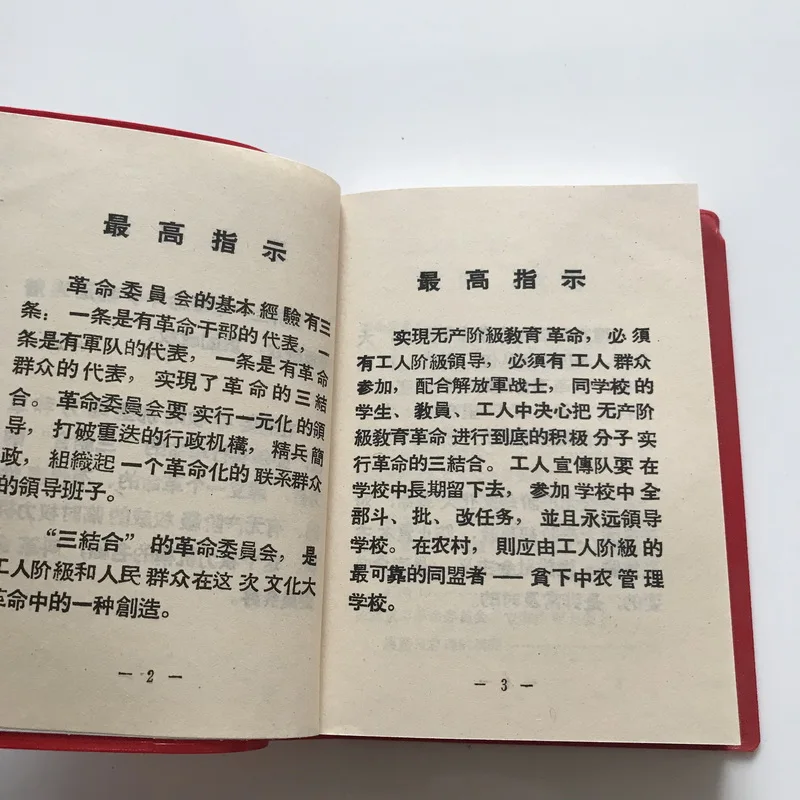 最高指示
革命委員会的基本經驗有三
条：一条是有革命干部的代表，一
条是有軍队的代表，一条是有革命
群众的代表，实現了革命的三結
合。革命委員会要实行一元化的領
导，打破重迭的行政机構，精兵簡
政，組織起一个革命化的联系群众
的領导班子。
“三結合”的革命委員会，是
工人阶級和人民群众在这次文化大
革命中的一种創造。
— 2 —
最高指示
实現无产阶級教育革命，必須
有工人阶級領导，必須有工人群众
参加，配合解放軍战士，同学校的
学生、教員、工人中决心把无产阶
級教育革命进行到底的积极分子实
行革命的三結合。工人宣傳队要在
学校中長期留下去，参加学校中全
部斗、批、改任务，並且永远領导
学校。在农村，則应由工人阶級的
最可靠的同盟者——貧下中农管理
学校。
— 3 —